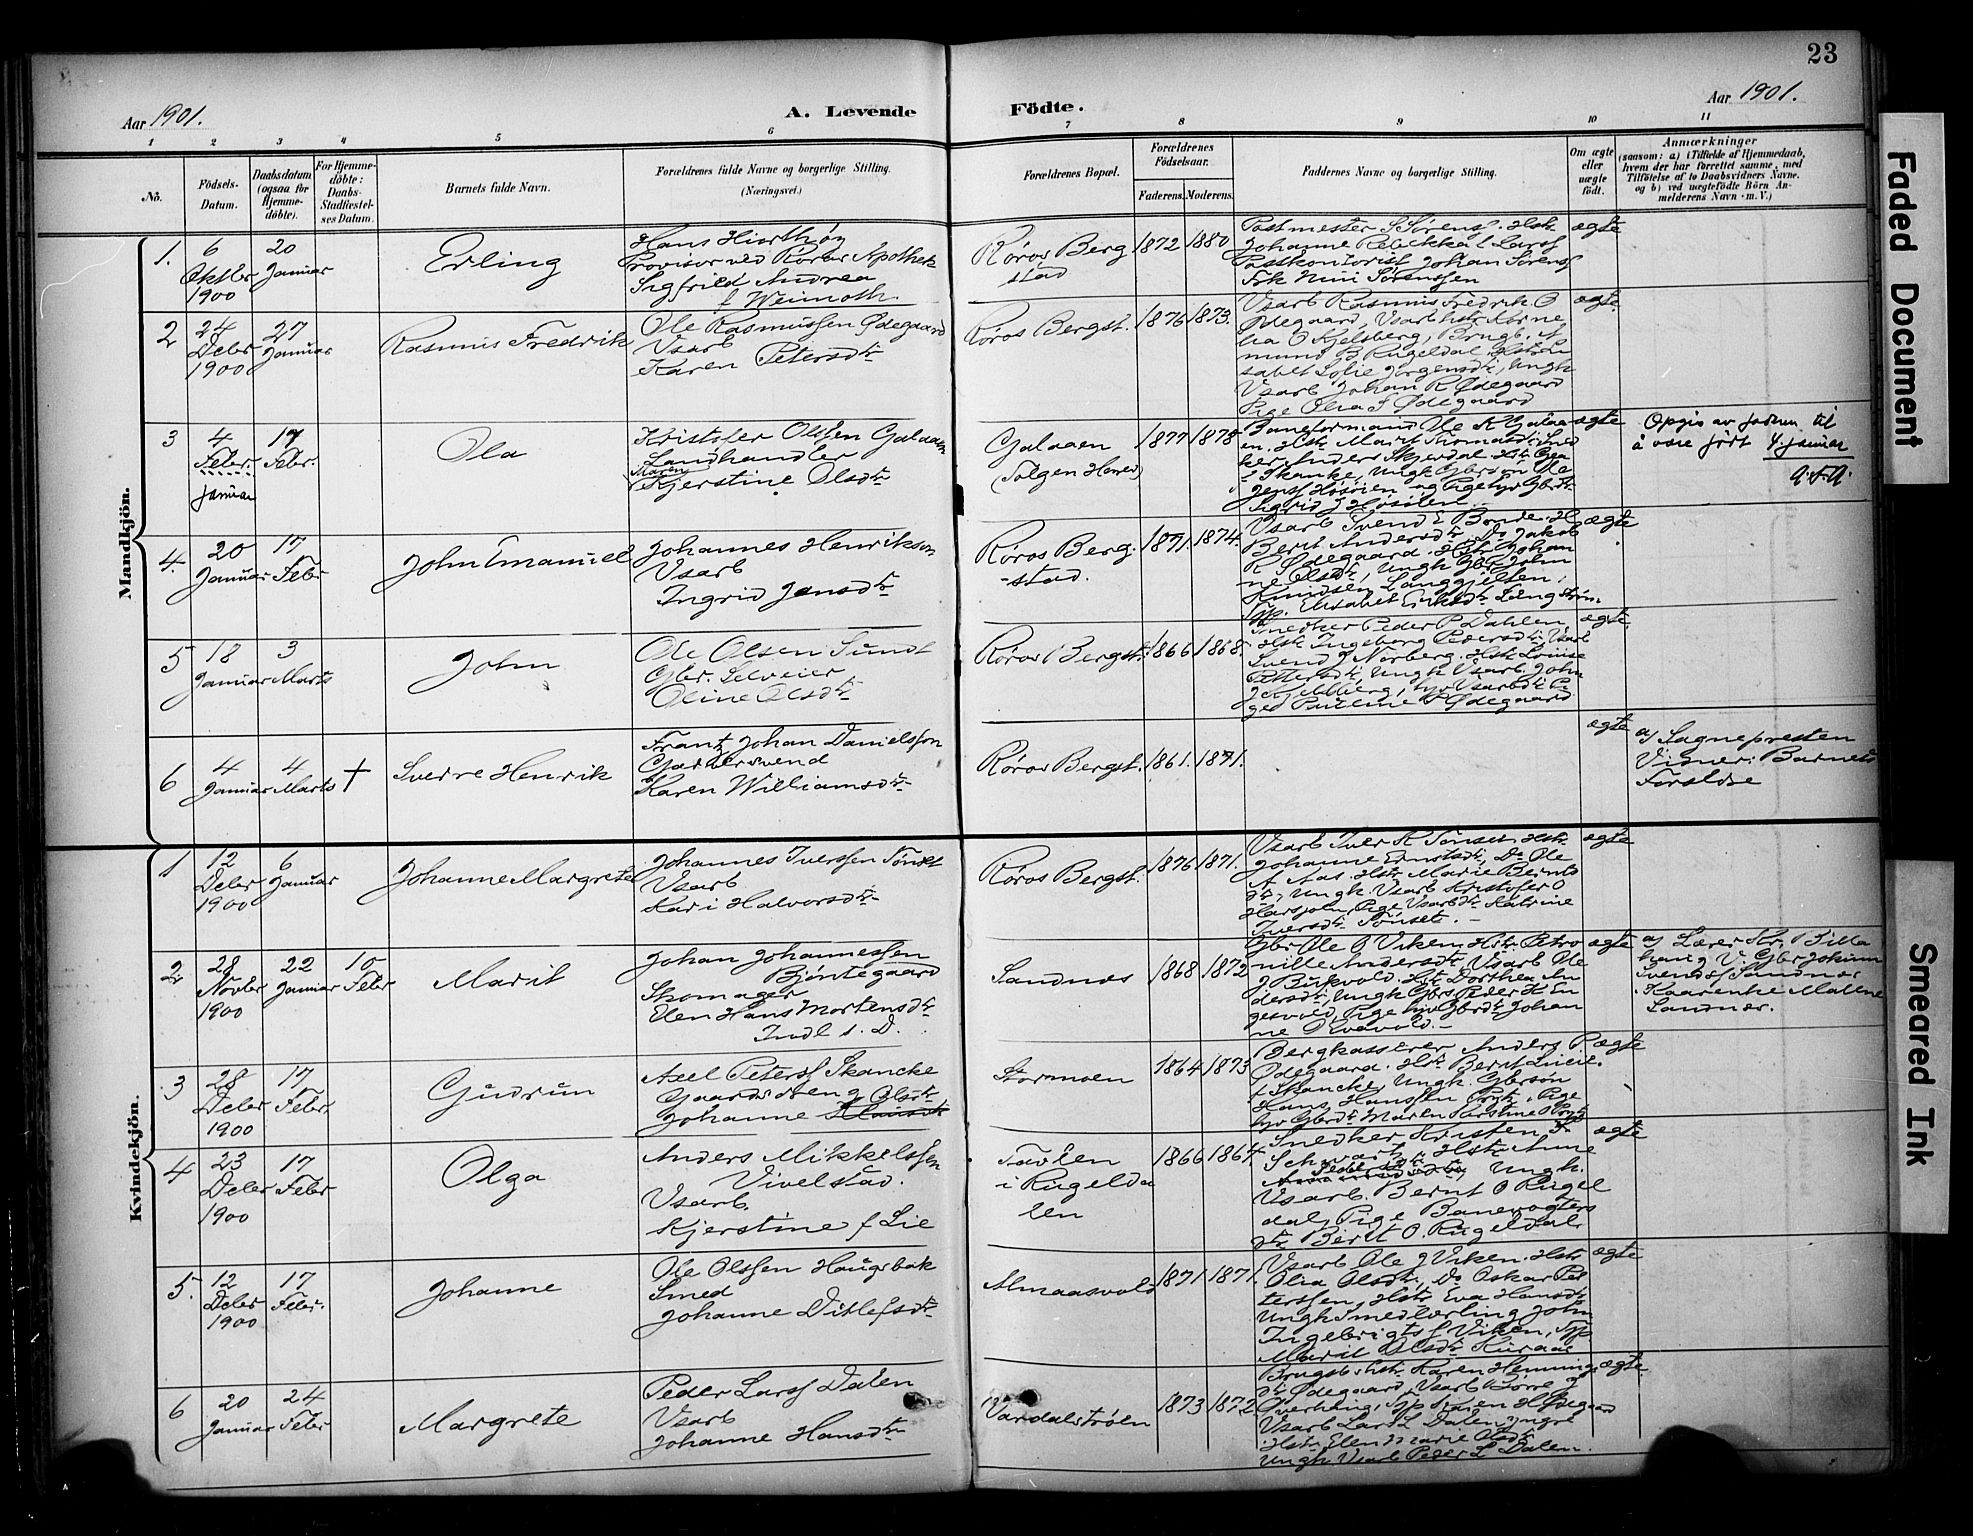 23
Aar 1901.
A. Levende Födte.
Aar 1901.
1 2 3 4 5 6 7 8 9 10 11
No.
Födsels-
Datum.
Daabsdatum
(ogsaa for
Hjemme-
döbte).
For Hjemme-
döbte:
Daabs-
Stadfæstel-
ses Datum.
Barnets fulde Navn.
Forældrenes fulde Navne og borgerlige Stilling.
(Næringsvei.)
Forældrenes Bopæl.
Forældrenes
Födselsaar.
Faderens. Moderens.
Faddernes Navne og borgerlige Stilling.
Om ægte
eller
uægte
födt.
Anmærkninger
(saasom: a) i Tilfælde af Hjemmedaab,
hvem der har forrettet samme, med
Tilföielse af to Daabsvidners Navne.
og b) ved uægtefödte Börn An-
melderens Navn · m. V.)
Mandkjön.
1.
6
Oktbr
1900
20
Januar
Erling
Hans Hiorthøy
Provisor ved Røros Apothek
Sigfrid Andrea
f Weinoth.
Røros Berg
stad
1872 1880
Postmester S Sørens
Johanne Rebekka L Larss
Postkontorist Johan Sørenss
Frk Nini Sørenssen
ægte
2
24
Decbr
1900
27
Januar
Rasmus Fredrik
Ole Rasmussen Ødegaard
Vsarb
Karen Petersdtr
Røros Bergst.
1876 1873.
Vsarb Rasmus Fredrik O
Ødegaard, Vsarb hstr Korne
lia O Kjelsberg, Brugb.
mund B Rugeldal,
sabet Sofie Jørgensdtr, Ungk
Vsarb Johan R Ødegaard
Pige Olia S Ødegaard
ægte
3
4
Febr.
januar
17
Febr.
Ola
Kristofer Olssen Galaaen
Landhandler
Maren
Kjerstine Olsdtr
Galaaen
(Tolgen Herred)
1877 1878
Baneformand Ole K Galaa
en. Hstr Marit Thomasdtr
ker Anders Skjerdal
f Skanke, Ungk Gbrsøn Ole
Jenss og Pige
Sigrid J
ægte
Opgis av faderen til
å være født 4. januar
4.
20
Januar
17
Febr
John Emanuel
Johannes Henriksen
Vsarb
Ingrid Jensdtr
Røros Berg.
-stad.
1871. 1874.
Vsarb Svend E Borde. H
Berit Andersdtr, Do Jakob
R Ødegaard. Hstr Johan
ne Olsdtr, Ungk Gbr John
Knudsen Langgjelten,
Elisabet Eriksdtr Langstrøm
ægte
5
18
Januar
3
Marts
John
Ole Olsen Sundt
Gbr. Selveier
Oline Olsdtr
Røros Bergst.
1866 1868.
Snedker Peder P Dahlen
Hstr Ingeborg Pedersdtr, Vsarb
Svend J Norberg. Hstr Louise
Petersdtr, Ungk Vsarb. John
Pauline P Ødegaard
ægte.
6
4
Januar
4
Marts
+
Sverre Henrik
Frantz Johan Danielssen
Garversvend
Karen Williamsdtr
Røros Bergst.
1861. 1871.
ægte
a) Sognepresten
Visner: Barnets
Forældre
Kvindekjön.
1
12
Decbr
1900
6
Januar
Johanne Margrete
Johannes Iverssen Tønset
Vsarb
Kari Halvorsdtr
Røros Bergst.
1876 1871.
Vsarb Iver K Tønset, Hstr
Johanne Ernstsdtr, Do Ole
A Aas. Hstr Marie Bernts
dtr, Ungk Vsarb Kristofer O
Harsjøen, Pige Vsarbdtr Katrine
Iversdtr Tønset. -
ægte
2
28
Novbr
1900
22
Januar
10
Febr
Marit
Johan Johannessen
Bjøntegaard
Skomager
Elen Hans Mortensdtr
Indl s. D.
Sandnes
1868 1872
Gbr Ole O Viken, Hstr Petro
nille Andersdtr, Vsarb Ole
J Bukvold. Hstr Dorthea An
dersdtr, Ungk Gbrs Peder H En
gesvold, Pige hjv Gbrdtr Johan
ne O Evavold. -
ægte
a) Lærer Kr. Billa
haug V. Gbr Jokum
Svends Sandnes
Kaarenke Malene
Sandnes.
3
28
Decbr
1900
17
Febr.
Gudrun
Axel Peterss Skancke
Gaardsdreng
Johanne Olsdtr
Stormoen
1864 1873
Bergkasserer Anders P
Ødegaard. Hstr Berit Lucie
f Skancke, Ungk. Gbrsøn
Hans Hanssen, Pige
hjv Gbrdtr Maren Kirstine O
ægte
4
23
Decbr
1900
17
Febr
Olga
Anders Mikkelssen
Vivelstad.
Vsarb.
Kjerstine f Lie
Tavlen
i Rugelda
len
1866 1867.
Snedker Kristen Fr
Schwartz, Hstr Anne
Pedersdtr, Ungk.
Vsarb. Bernt O Rugel
dal, Pige Banevogters
dtr Berit O. Rugeldal.
ægte
5.
12
Decbr
1900
17
Febr.
Johanne
Ole Olssen Haugsbak
Smed
Johanne Ditlefsdtr
Almaasvold
1871 1871.
Vsarb Ole J Viken. Hstr
Olia Olsdtr, Do Oskar Pet
terssen, Hstr Eva Hansdtr
Ungk Smedlærling John
Ingebrigts s Viken, Tjp
Marit Olsdtr Kuraas
ægte
6
20
Januar
24
Febr
Margrete
Peder Larss Dalen
Vsarb
Johanne Hansdtr
Vardalstrøen
1873 1872
Brugsb. hstr Karen Hemmings
dtr Ødegaard, Vsarb Børre J
Øverhaug, Tjp Karen H Ødegaard
Vsarb Lars L Dalen yngre
Hstr Elen Marie Olsdtr
Ungk. Vsarb Peder L Dalen.
ægte
Faded Document
Smeared Ink